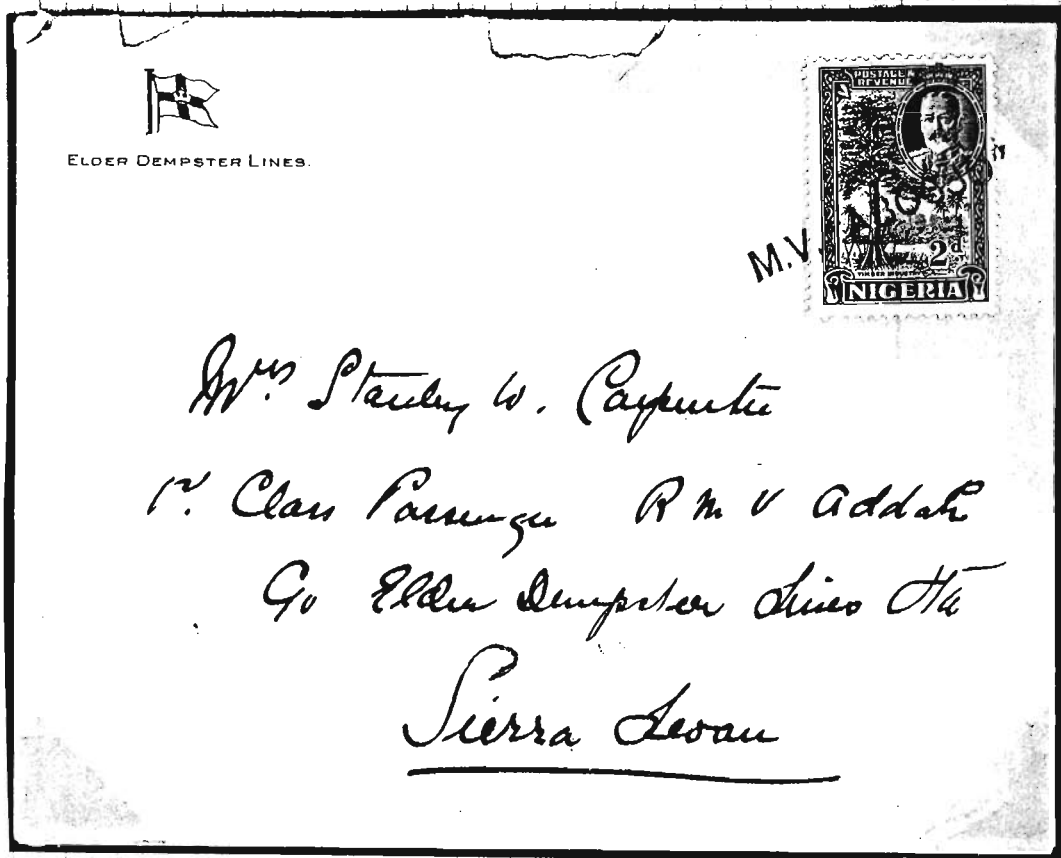 ELDER DEMPSTER LINES.
POSTAGE &
REVENUE
M.V.
2d
TIMBER INDUSTRY
NIGERIA
Mrs. Stanley W. Carpenter
1st. Class Passenger R M V Addah
c/o Elder Dempster Lines Ltd
Sierra Leoan